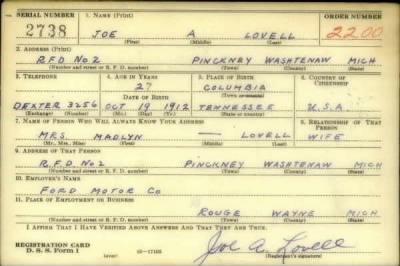 SERIAL NUMBER 1. NAME (Print) ORDER NUMBER
2738 JOE A LOVELL 2200
(First) (Middle) (Last)
2. ADDRESS (Print)
R.F.D. No 2 PINCKNEY WASHTENAW MICH
(Number and street or R. F. D. number) (Town) (County) (State)
3. TELEPHONE 4. AGE IN YEARS 5. PLACE OF BIRTH 6. COUNTRY OF CITIZENSHIP
27 COLUMBIA
DATE OF BIRTH (Town or county)
DEXTER 3256 OCT 19 1912 TENNESSEE U.S.A
(Exchange) (Number) (Mo.) (Day) (Yr.) (State or country)
7. NAME OF PERSON WHO WILL ALWAYS KNOW YOUR ADDRESS 8. RELATIONSHIP OF THAT PERSON
MRS. MADLYN — LOVELL WIFE
(Mr., Mrs., Miss) (First) (Middle) (Last)
9. ADDRESS OF THAT PERSON
R.F.D. No 2 PINCKNEY WASHTENAW MICH
(Number and street or R. F. D. number) (Town) (County) (State)
10. EMPLOYER'S NAME
FORD MOTOR CO
11. PLACE OF EMPLOYMENT OR BUSINESS
ROUGE WAYNE MICH
(Number and street or R. F. D. number) (Town) (County) (State)
I AFFIRM THAT I HAVE VERIFIED ABOVE ANSWERS AND THAT THEY ARE TRUE.
REGISTRATION CARD
D. S. S. Form 1 (over) Joe A. Lovell
(Registrant's signature)